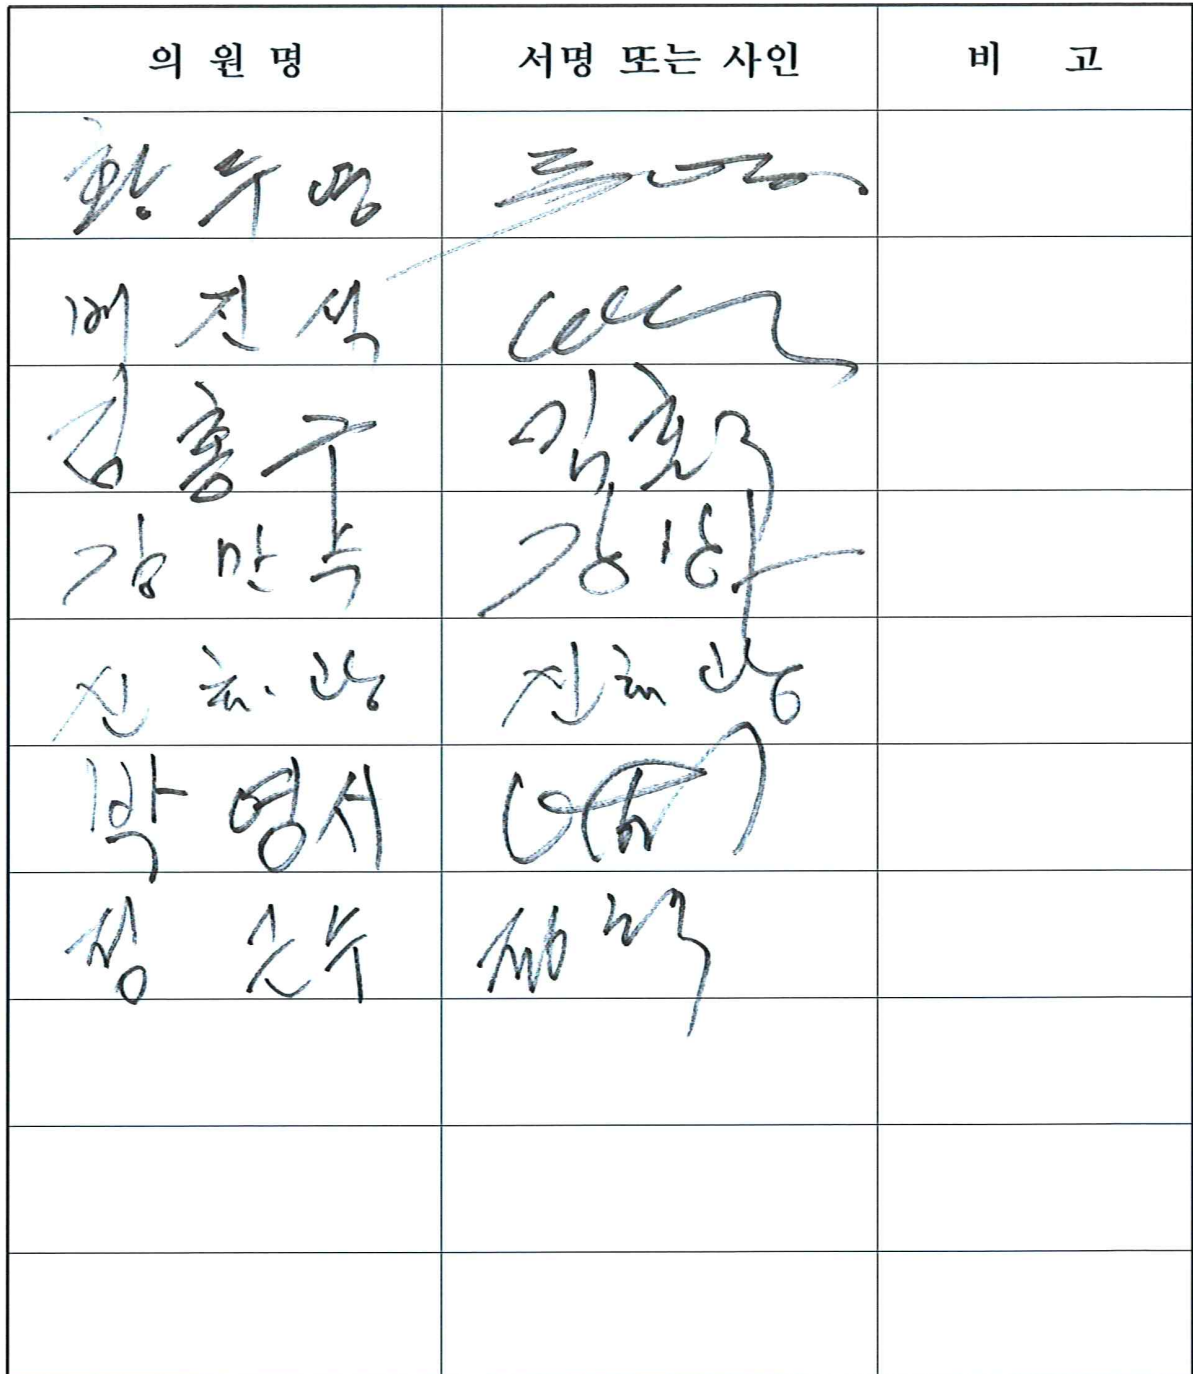 의 원 명 서명 또는 사인 비 고
황 수 영
배 진 석
김 홍 구 김홍구
김 만 수
신 효 광 신효광
박 영 서
정 근 수